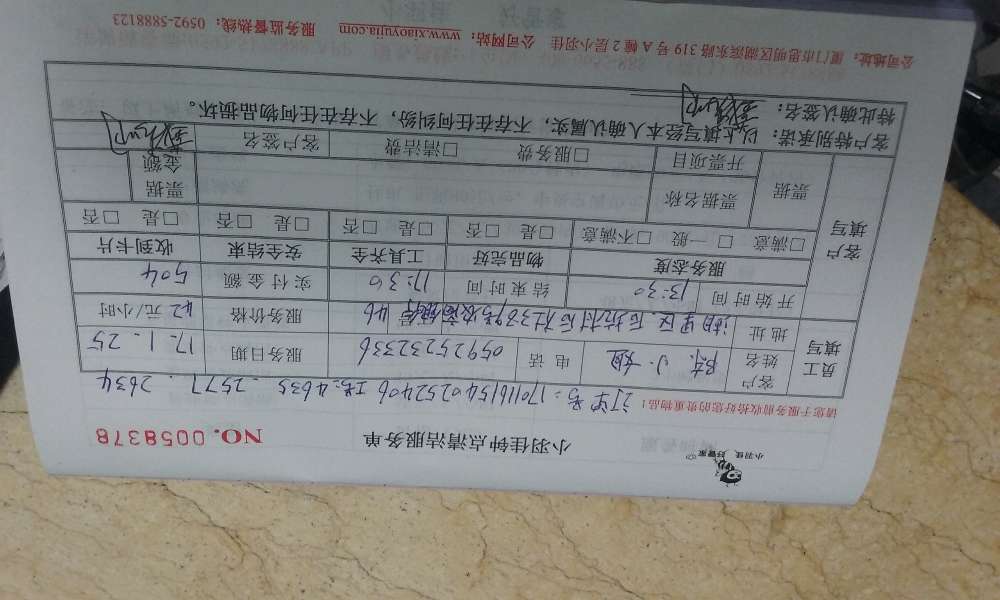 小羽佳 好管家
小羽佳钟点清洁服务单
NO. 0058378
请您于服务前收拾好您的贵重物品！
订单号：1701161540252406 工号：4635 - 2577 - 2634
员工填写
客户姓名 陈小姐 电话 05925232336 服务日期 17.1.25
地址 湖里区 46 服务价格 42元/小时
开始时间 13:30 结束时间 17:30 实付金额 504
客户填写
服务态度 物品完好 工具齐全 安全结束 收到卡片
□满意 □一般 □不满意 □是 □否 □是 □否 □是 □否 □是 □否
票据 票据名称 票据金额
开票项目 □服务费 □清洁费 客户签名
客户特别承诺：以上填写经本人确认属实，不存在任何纠纷，不存在任何物品损坏。
特此确认签名：
公司地址：厦门市思明区湖滨东路319号A幢2层小羽佳 公司网站：www.xiaoyujia.com 服务监督热线：0592-5888123